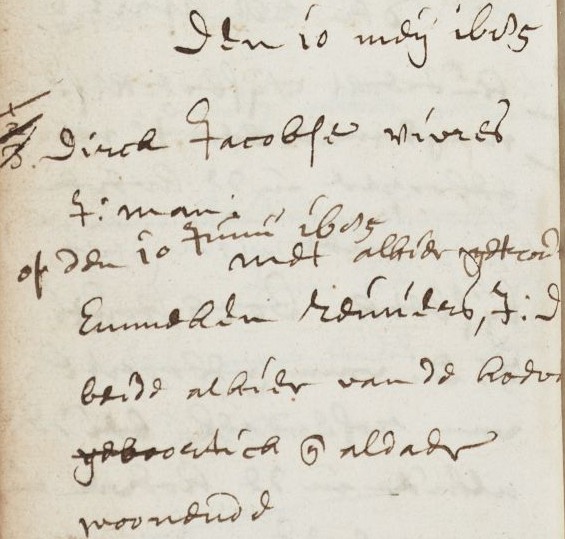 Den 10 meÿ 1685
Dirck Jacobse vivres
J: man:
of den 10 Junii 1685
met alhier getrou
Emmeken reiniers, J: D
beide alhier van de
geboortich @ aldaer
woonende